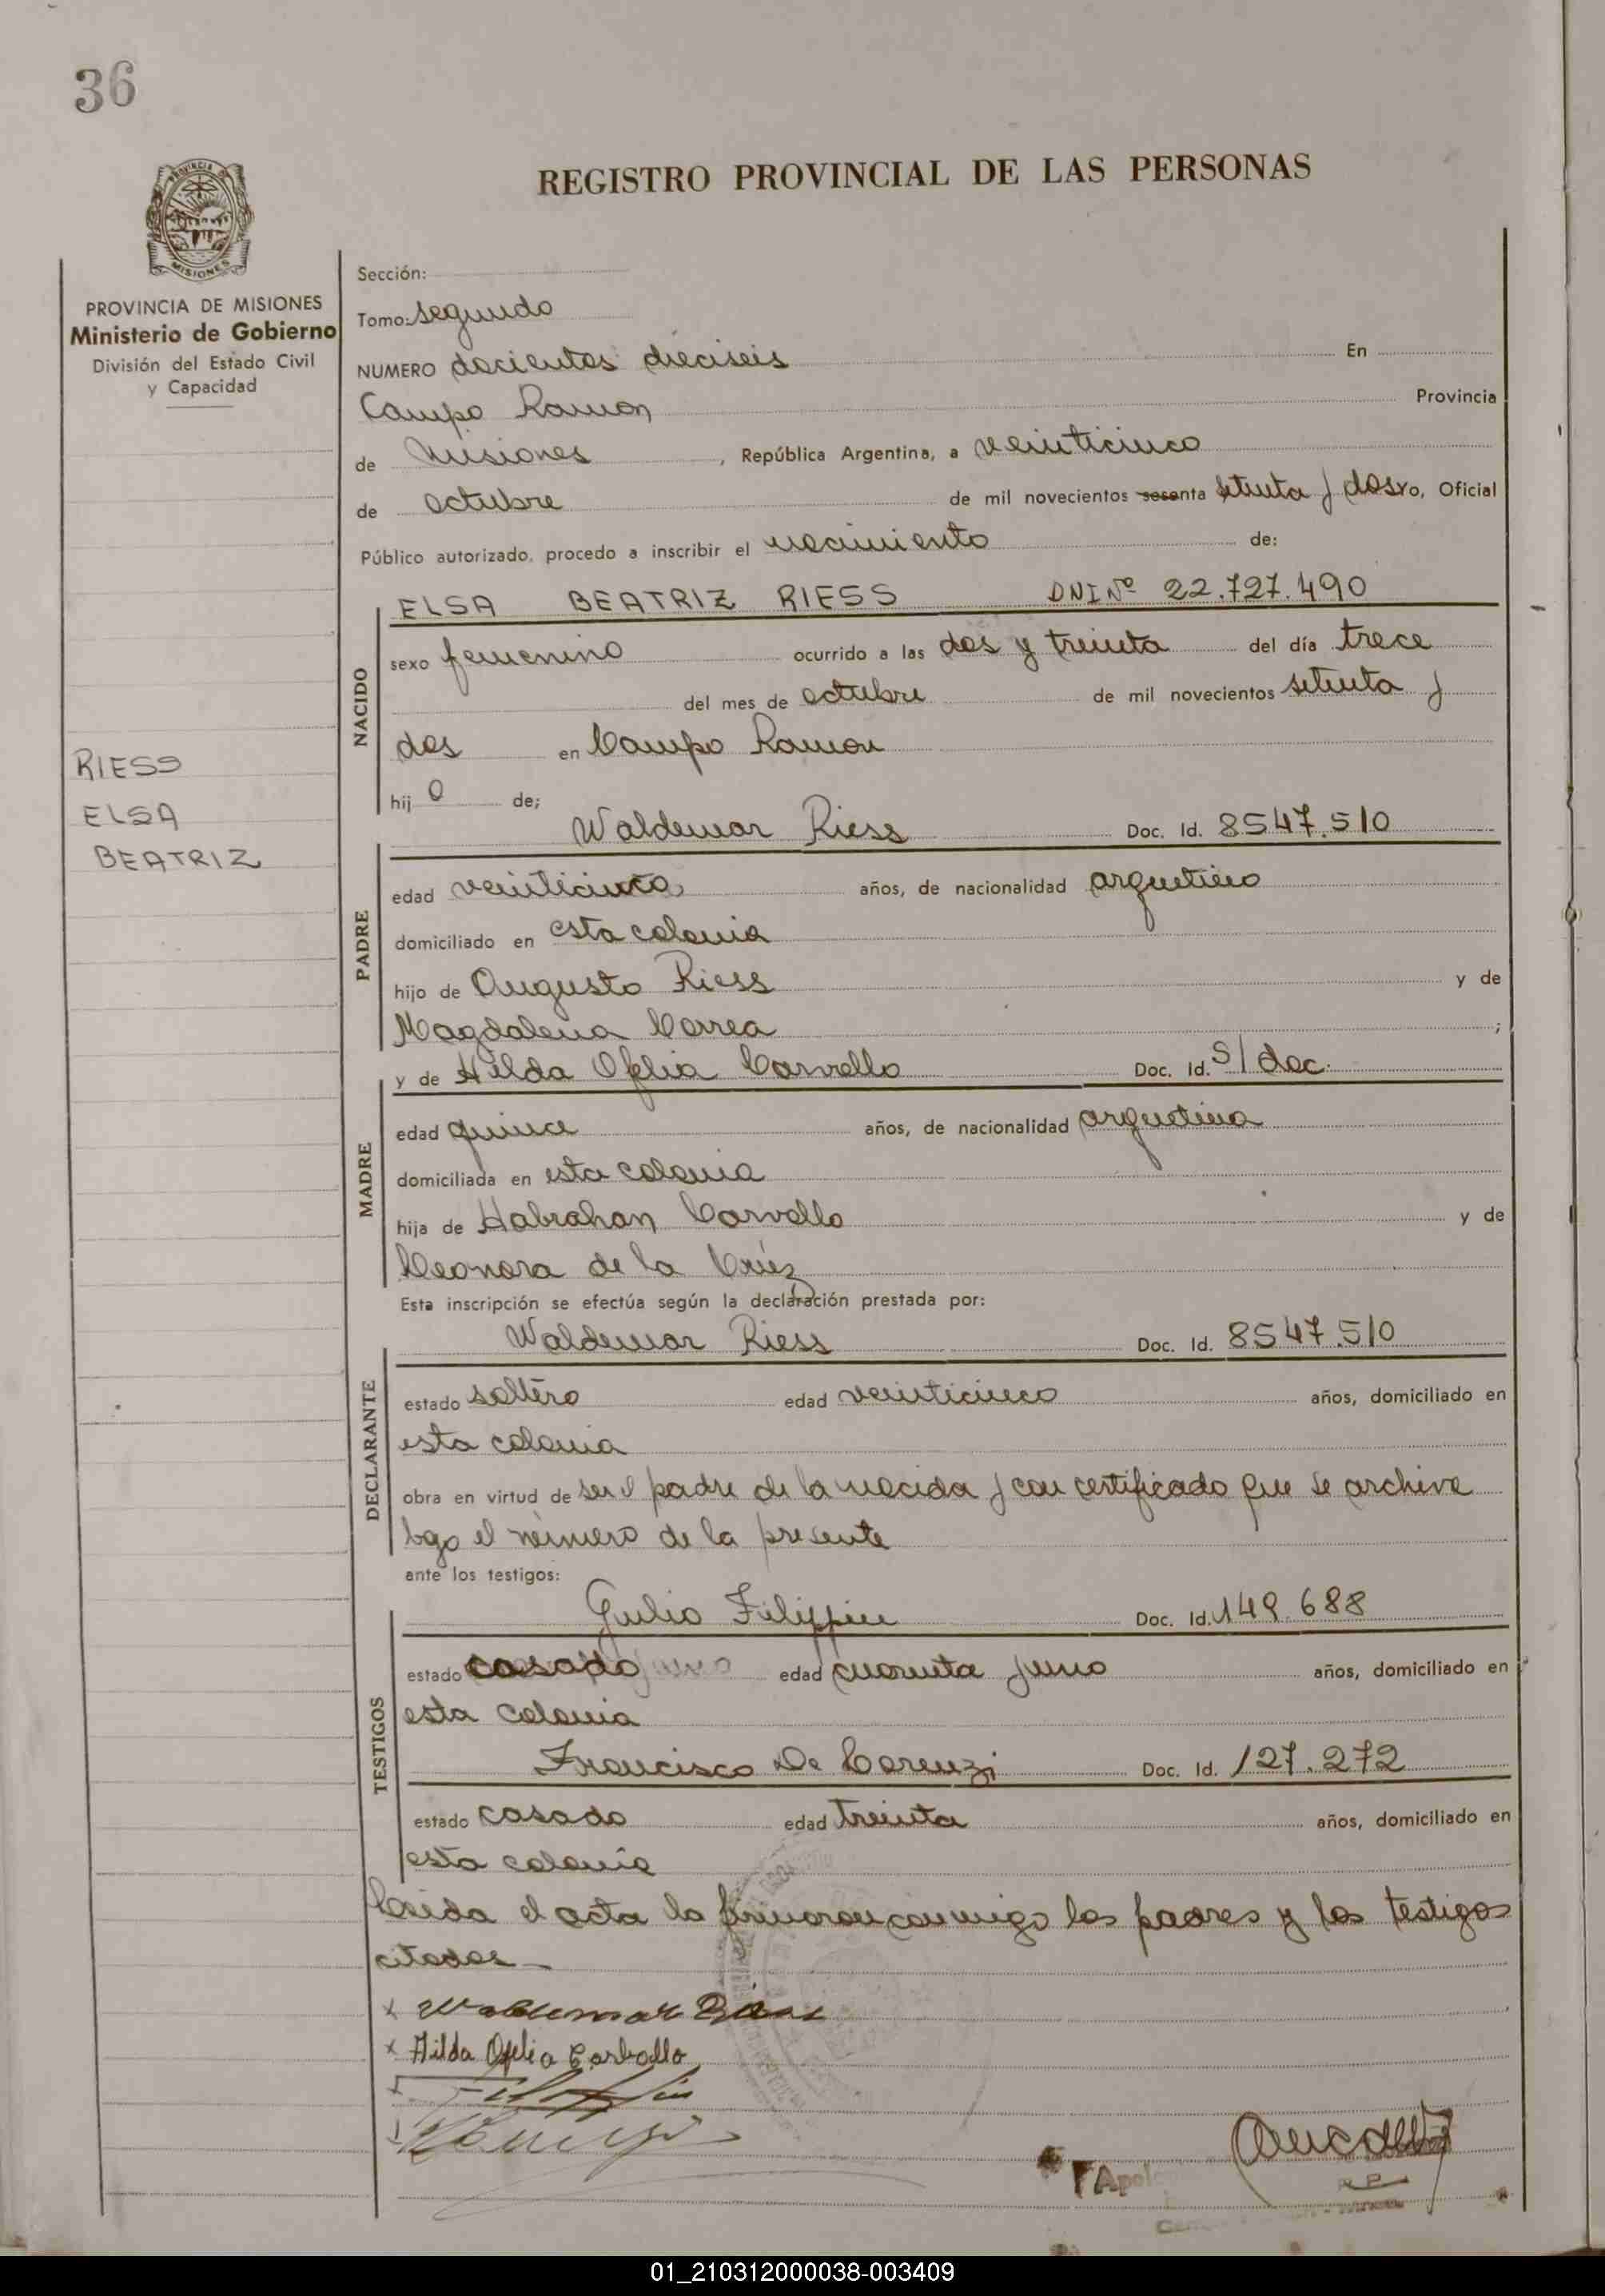 36
PROVINCIA
MISIONES
REGISTRO PROVINCIAL DE LAS PERSONAS
PROVINCIA DE MISIONES
Ministerio de Gobierno
División del Estado Civil
y Capacidad
RIESS
ELSA
BEATRIZ
Sección:
Tomo: segundo
NUMERO docientos dieciseis En
Campo Ramon Provincia
de Misiones, República Argentina, a veinticinco
de octubre de mil novecientos sesenta setenta y dos yo, Oficial
Público autorizado, procedo a inscribir el nacimiento de:
ELSA BEATRIZ RIESS DNI Nº 22.727.490
NACIDO
sexo femenino ocurrido a las dos y treinta del día trece
del mes de octubre de mil novecientos setenta y
dos en Campo Ramon
hij a de;
Waldemar Riess Doc. Id. 8547.510
PADRE
edad veinticinco años, de nacionalidad argentino
domiciliado en esta colonia
hijo de Augusto Riess y de
Magdalena Correa ;
y de Hilda Ofelia Carvallo Doc. Id. S/ doc.
MADRE
edad quince años, de nacionalidad argentina
domiciliada en esta colonia
hija de Habrahan Carvallo y de
Leonora de la Cruz
Esta inscripción se efectúa según la declaración prestada por:
Waldemar Riess Doc. Id. 8547.510
DECLARANTE
estado soltero edad veinticinco años, domiciliado en
esta colonia
obra en virtud de ser el padre de la nacida y con certificado que se archiva
bajo el número de la presente
ante los testigos:
Julio Filippin Doc. Id. 149.688
TESTIGOS
estado casado edad cuarenta y uno años, domiciliado en
esta colonia
Francisco De Lorenzi Doc. Id. 127.272
estado casado edad treinta años, domiciliado en
esta colonia
Leida el acta la firmaron conmigo los padres y los testigos
citados
x Waldemar Riess
x Hilda Ofelia Carballo
01_210312000038-003409